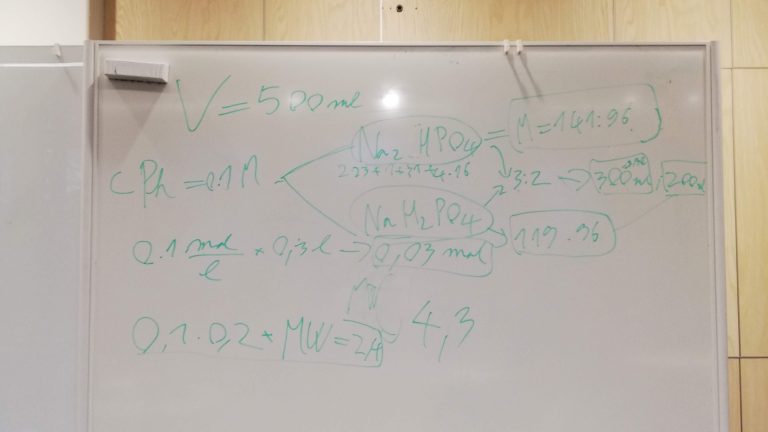 V = 500 ml
Na2HPO4 = M = 141.96
2·23+1+31+4·16
c Ph = 0.1 M
3:2 → 300 ml, 200 ml
NaH2PO4
119.96
0.1 mol/l * 0,3 l → 0,03 mol
0,1·0,2 * MW = 2,4
4,3